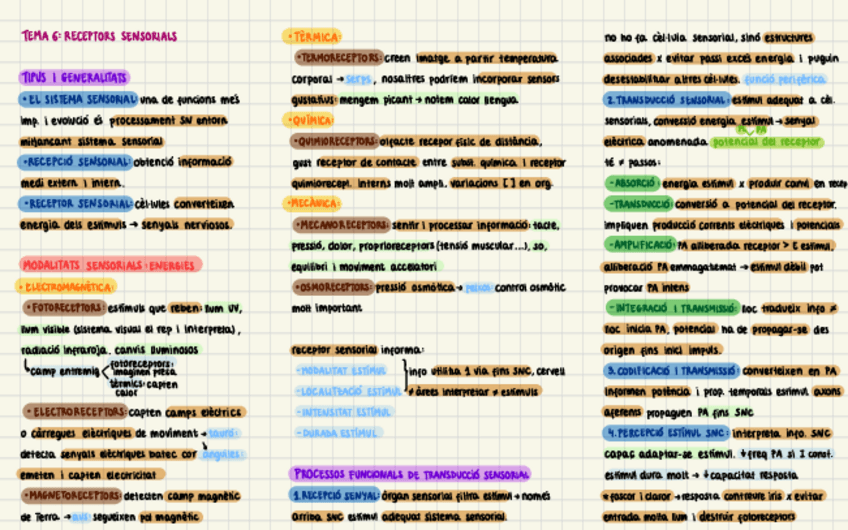 TEMA 6: RECEPTORS SENSORIALS
TIPUS I GENERALITATS
• EL SISTEMA SENSORIAL: una de funcions més
imp. i evolució és processament SN entorn
mitjançant sistema sensorial
• RECEPCIÓ SENSORIAL: obtenció informació
medi extern i intern.
• RECEPTOR SENSORIAL: cèl·lules converteixen
energia dels estímuls → senyals nerviosos.
MODALITATS SENSORIALS: ENERGIES
• ELECTROMAGNÈTICA:
• FOTORECEPTORS: estímuls que reben: llum UV,
llum visible (sistema visual el rep i interpreta),
radiació infraroja. canvis lluminosos
camp entremig
fotoreceptors:
imaginen presa
tèrmics: capten
calor
• ELECTRORECEPTORS: capten camps elèctrics
o càrregues elèctriques de moviment → tauró:
detecta senyals elèctriques batec cor anguiles:
emeten i capten electricitat
• MAGNETORECEPTORS: detecten camp magnètic
de Terra. → aus segueixen pol magnètic
• TÈRMICA:
• TERMORECEPTORS: creen imatge a partir temperatura
corporal → serps, nosaltres podríem incorporar sensors
gustatius: mengem picant → notem calor llengua.
• QUÍMICA:
• QUIMIORECEPTORS: olfacte recepor físic de distància,
gust receptor de contacte entre subst. química i receptor
quimiorecept. interns molt ampli. variacions [ ] en org.
• MECÀNICA:
• MECANORECEPTORS: sentir i processar informació: tacte,
pressió, dolor, propriorceptors (tensió muscular...), so,
equilibri i moviment accelatori
• OSMORECEPTORS: pressió osmòtica → peixos: control osmòtic
molt important
receptor sensorial informa:
- MODALITAT ESTÍMUL
- LOCALITZACIÓ ESTÍMUL
- INTENSITAT ESTÍMUL
- DURADA ESTÍMUL
info utilitza 1 via fins SNC, cervell
≠ àrees interpretar ≠ estímuls
PROCESSOS FUNCIONALS DE TRANSDUCCIÓ SENSORIAL
1. RECEPCIÓ SENYAL: òrgan sensorial filtra estímul → només
arriba SNC estímul adequat sistema sensorial.
no ho fa cèl·lula sensorial, sinó estructures
associades x evitar passi excés energia i puguin
desestabilitzar altres cèl·lules. funció perifèrica.
2. TRANSDUCCIÓ SENSORIAL: estímul adequat a cèl.
sensorials, conversió energia estímul → senyal
elèctrica anomenada potencial del receptor
té ≠ passos:
- ABSORCIÓ: energia estímul x produir canvi en recep
- TRANSDUCCIÓ: conversió a potencial del receptor.
impliquen producció corrents elèctriques i potencials
- AMPLIFICACIÓ: PA alliberada receptor > E estímul.
alliberació PA emmagatzemat → estímul dèbil pot
provocar PA intens
- INTEGRACIÓ I TRANSMISSIÓ: lloc tradueix info ≠
lloc inicia PA, potencial ha de propagar-se des
origen fins inici impuls.
3. CODIFICACIÓ I TRANSMISSIÓ: converteixen en PA
informen potència i prop. temporals estímul axons
aferents propaguen PA fins SNC
4. PERCEPCIÓ ESTÍMUL SNC: interpreta info. SNC
capaç adaptar-se estímul. ↓freq PA si I const.
estímul dura molt → ↓capacitat resposta
*foscor i claror → resposta contreure iris x evitar
entrada molta llum i destruir fotoreceptors